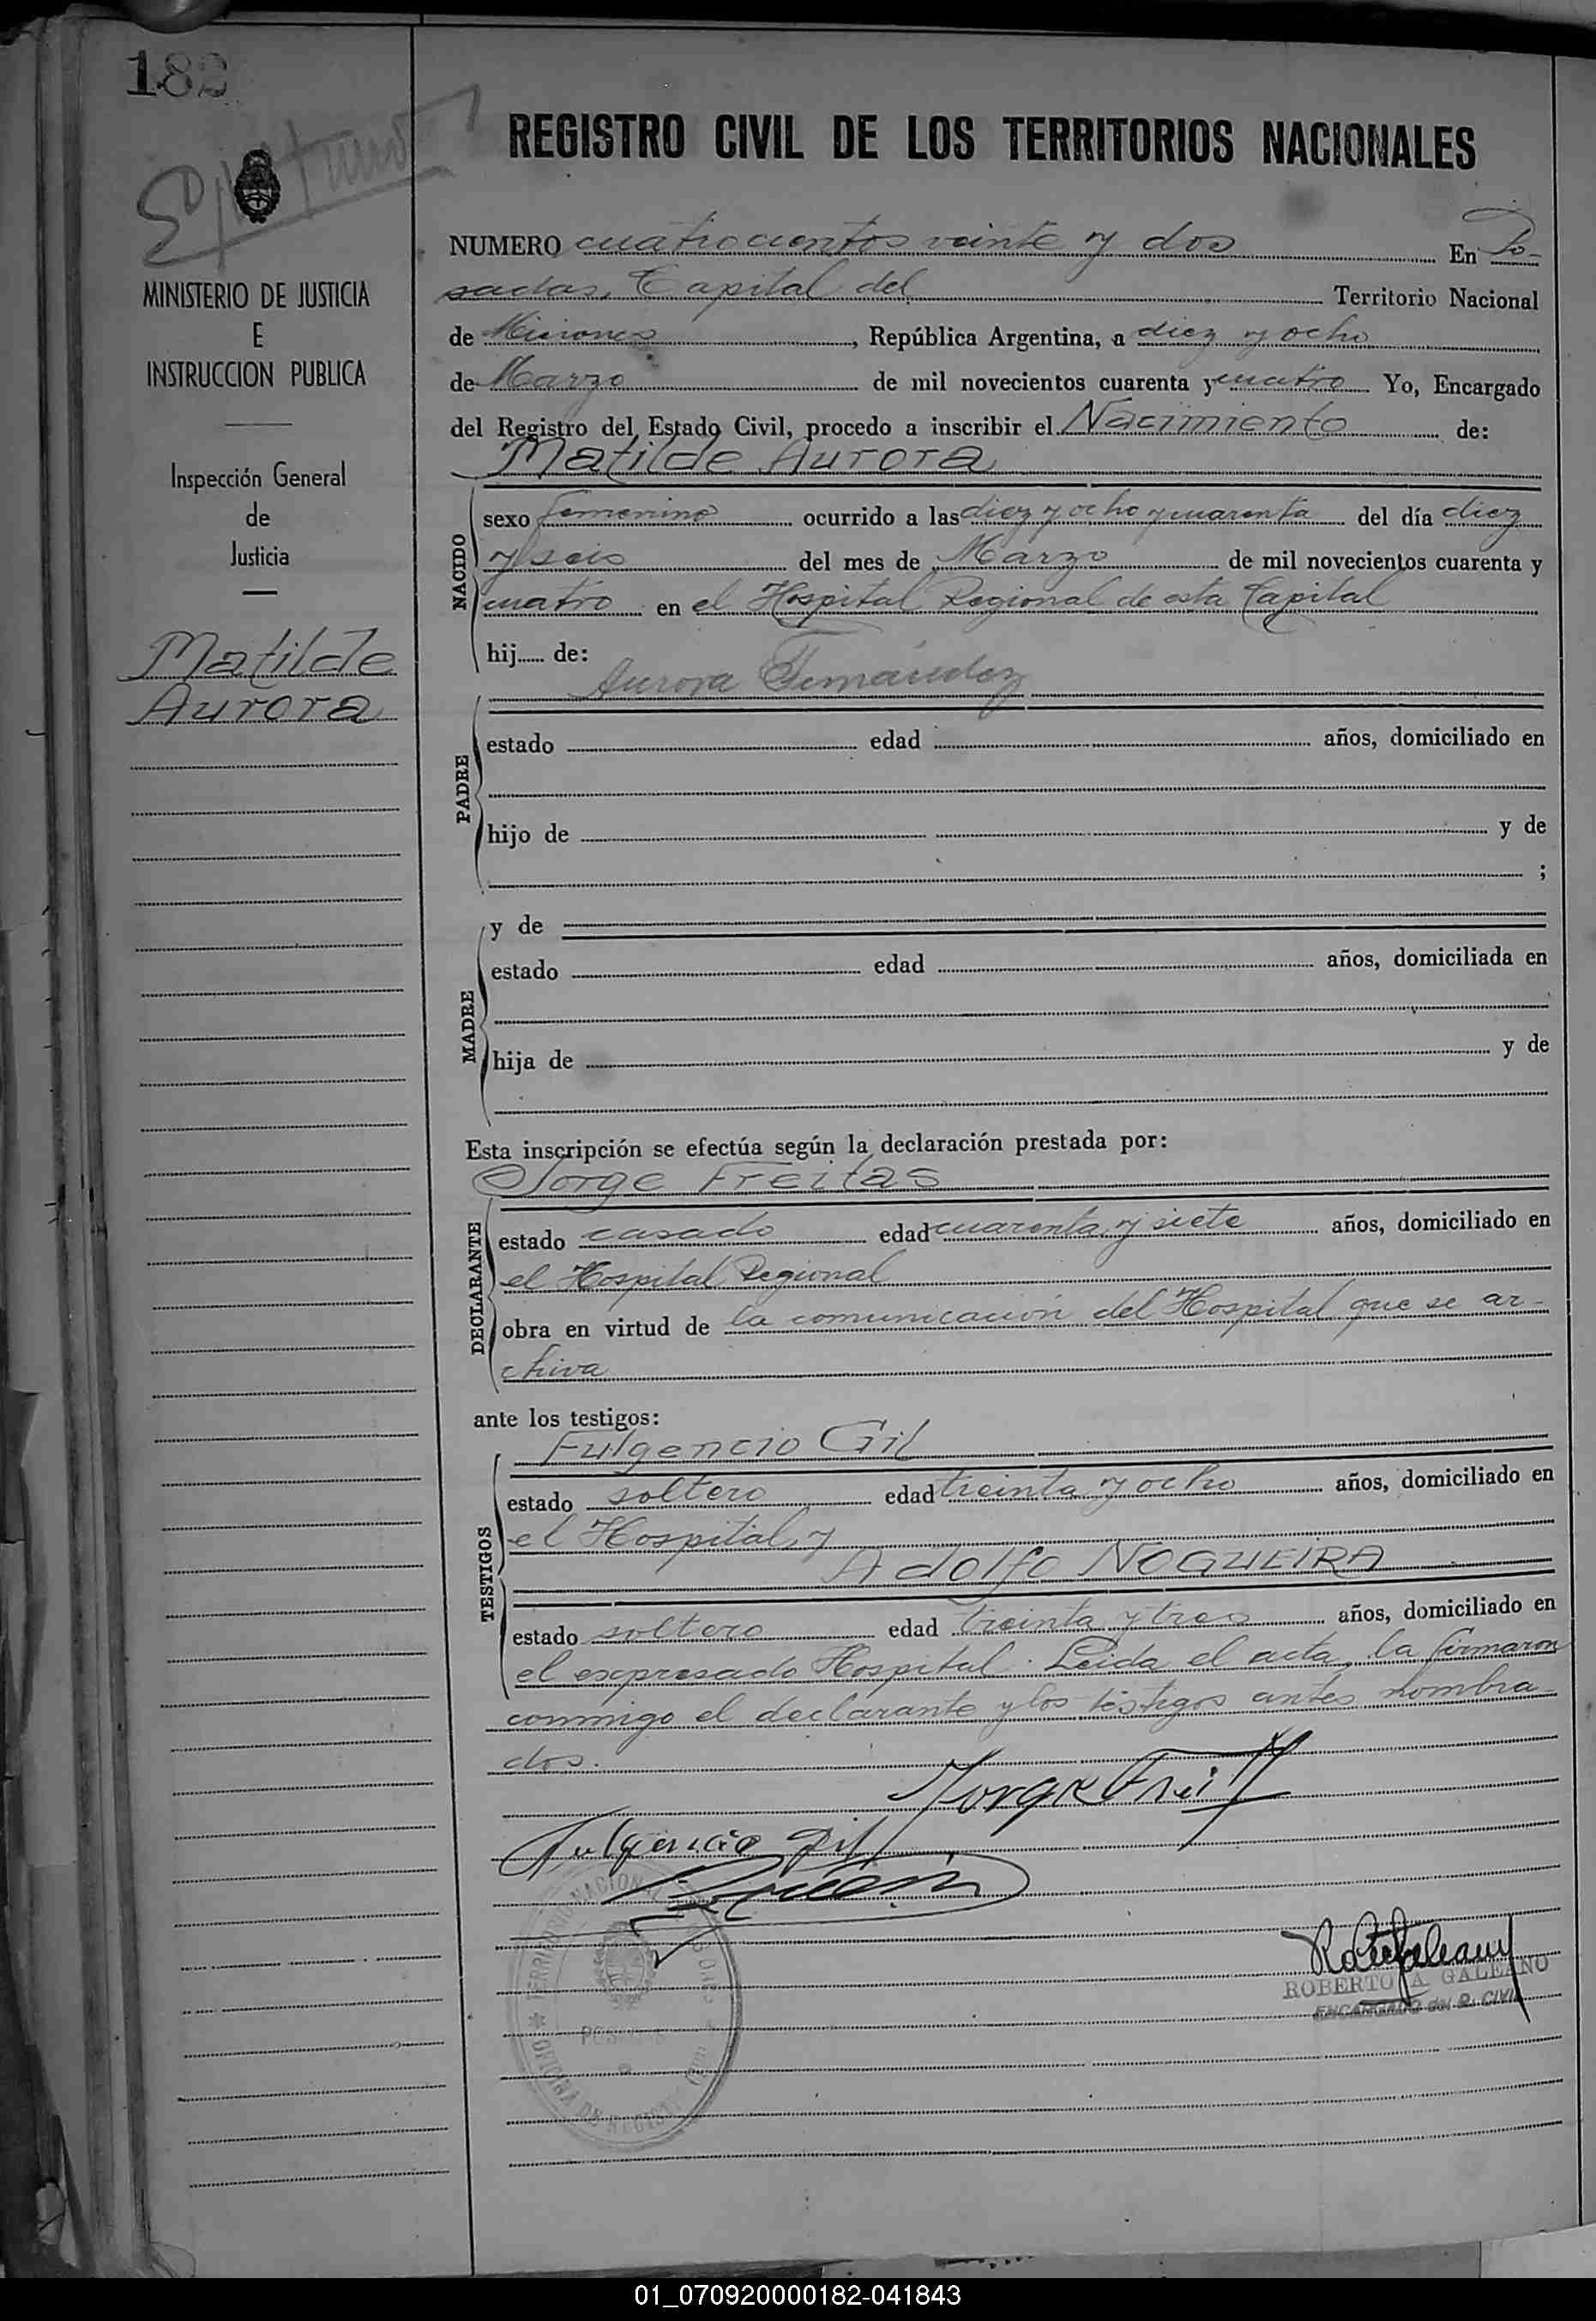 182
REGISTRO CIVIL DE LOS TERRITORIOS NACIONALES
MINISTERIO DE JUSTICIA
E
INSTRUCCION PUBLICA
Inspección General
de
Justicia
Matilde
Aurora
NUMERO cuatrocientos veinte y dos En Po-
sadas, Capital del Territorio Nacional
de Misiones, República Argentina, a diez y ocho
de Marzo de mil novecientos cuarenta y cuatro Yo, Encargado
del Registro del Estado Civil, procedo a inscribir el Nacimiento de:
Matilde Aurora
NACIDO
sexo femenino ocurrido a las diez y ocho y cuarenta del día diez
y seis del mes de Marzo de mil novecientos cuarenta y
cuatro en el Hospital Regional de esta Capital
hij...... de:
Aurora Fernández
PADRE
estado edad años, domiciliado en
hijo de y de
;
MADRE
y de
estado edad años, domiciliada en
hija de y de
Esta inscripción se efectúa según la declaración prestada por:
Jorge Freitas
DECLARANTE
estado casado edad cuarenta y siete años, domiciliado en
el Hospital Regional
obra en virtud de la comunicación del Hospital que se ar-
chiva
ante los testigos:
Fulgencio Gil
TESTIGOS
estado soltero edad treinta y ocho años, domiciliado en
el Hospital, y
Adolfo NOGUEIRA
estado soltero edad treinta y tres años, domiciliado en
el expresado Hospital. Leida el acta, la firmaron
conmigo el declarante y los testigos antes nombra-
dos.
Jorge Freitas
Fulgencio Gil
TERRITORIO NACIONAL
OFICINA DE REGISTRO
ROBERTO A. GALEANO
ENCARGADO del R. CIVIL
01_070920000182-041843